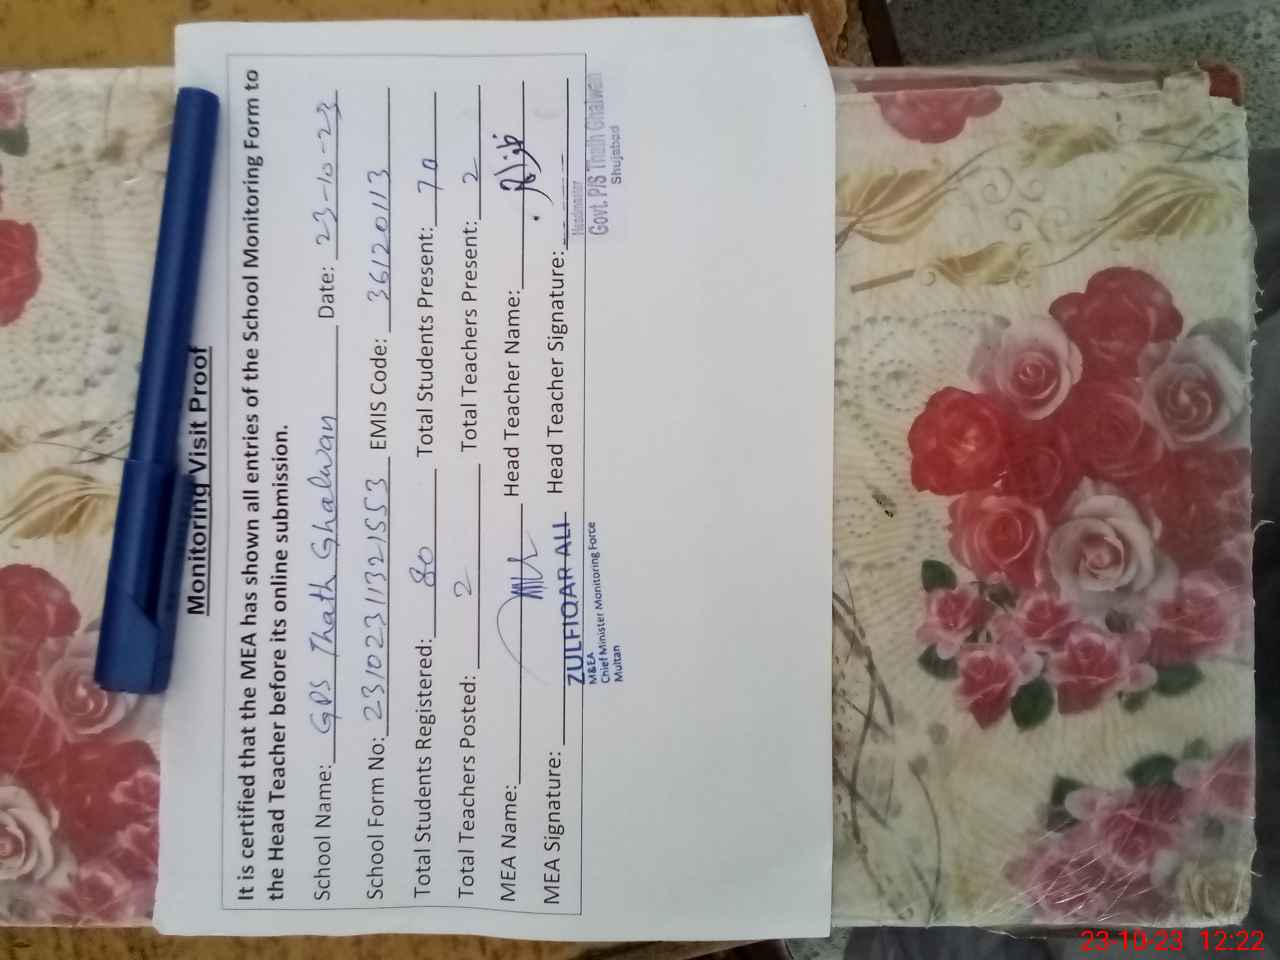 Monitoring Visit Proof
It is certified that the MEA has shown all entries of the School Monitoring Form to
the Head Teacher before its online submission.
School Name: GPS Thath Ghalwan Date: 23-10-23
School Form No: 23102311321553 EMIS Code: 36120113
Total Students Registered: 80 Total Students Present: 70
Total Teachers Posted: 2 Total Teachers Present: 2
MEA Name: Head Teacher Name:
MEA Signature: ZULFIQAR ALI Head Teacher Signature:
M&EA
Chief Minister Monitoring Force
Multan
Headmaster
Govt. P/S Thath Ghalwan
Shujabad
23-10-23 12:22